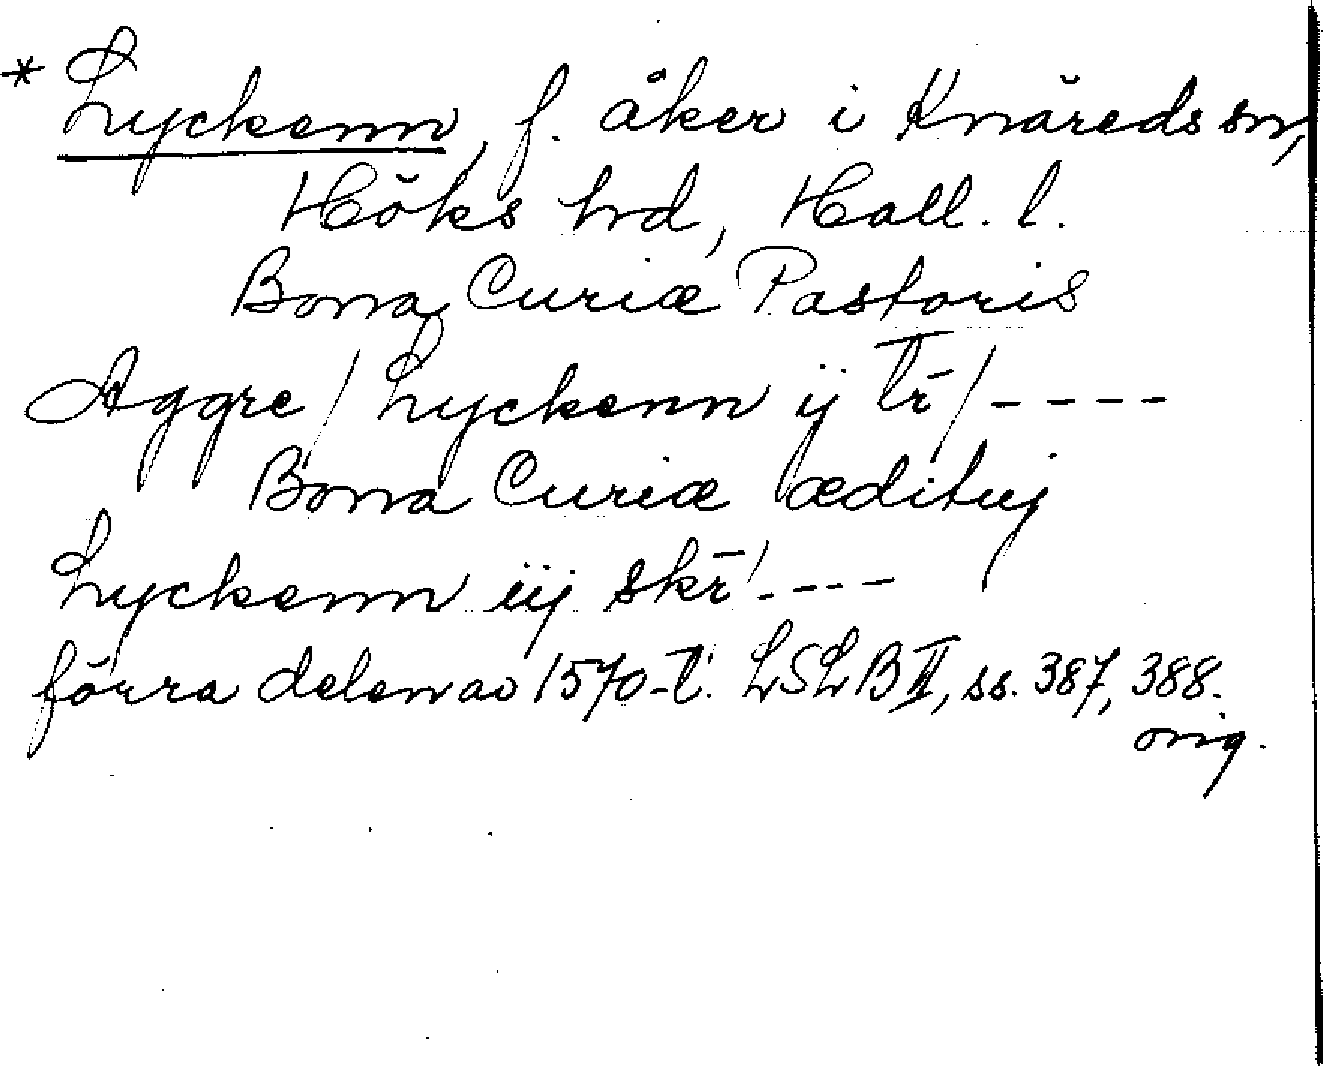 * Lyckenn, f. åker i Knäreds sn,
Höks hd, Hall. l.
Bona Curiæ Pastoris
Aggre / Lyckenn ij tr̄ / ----
Bona Curiæ ædituj
Lyckenn iij skr̄ / ----
förra delen av 1570-t. LSLB II, ss. 387, 388.
orig.